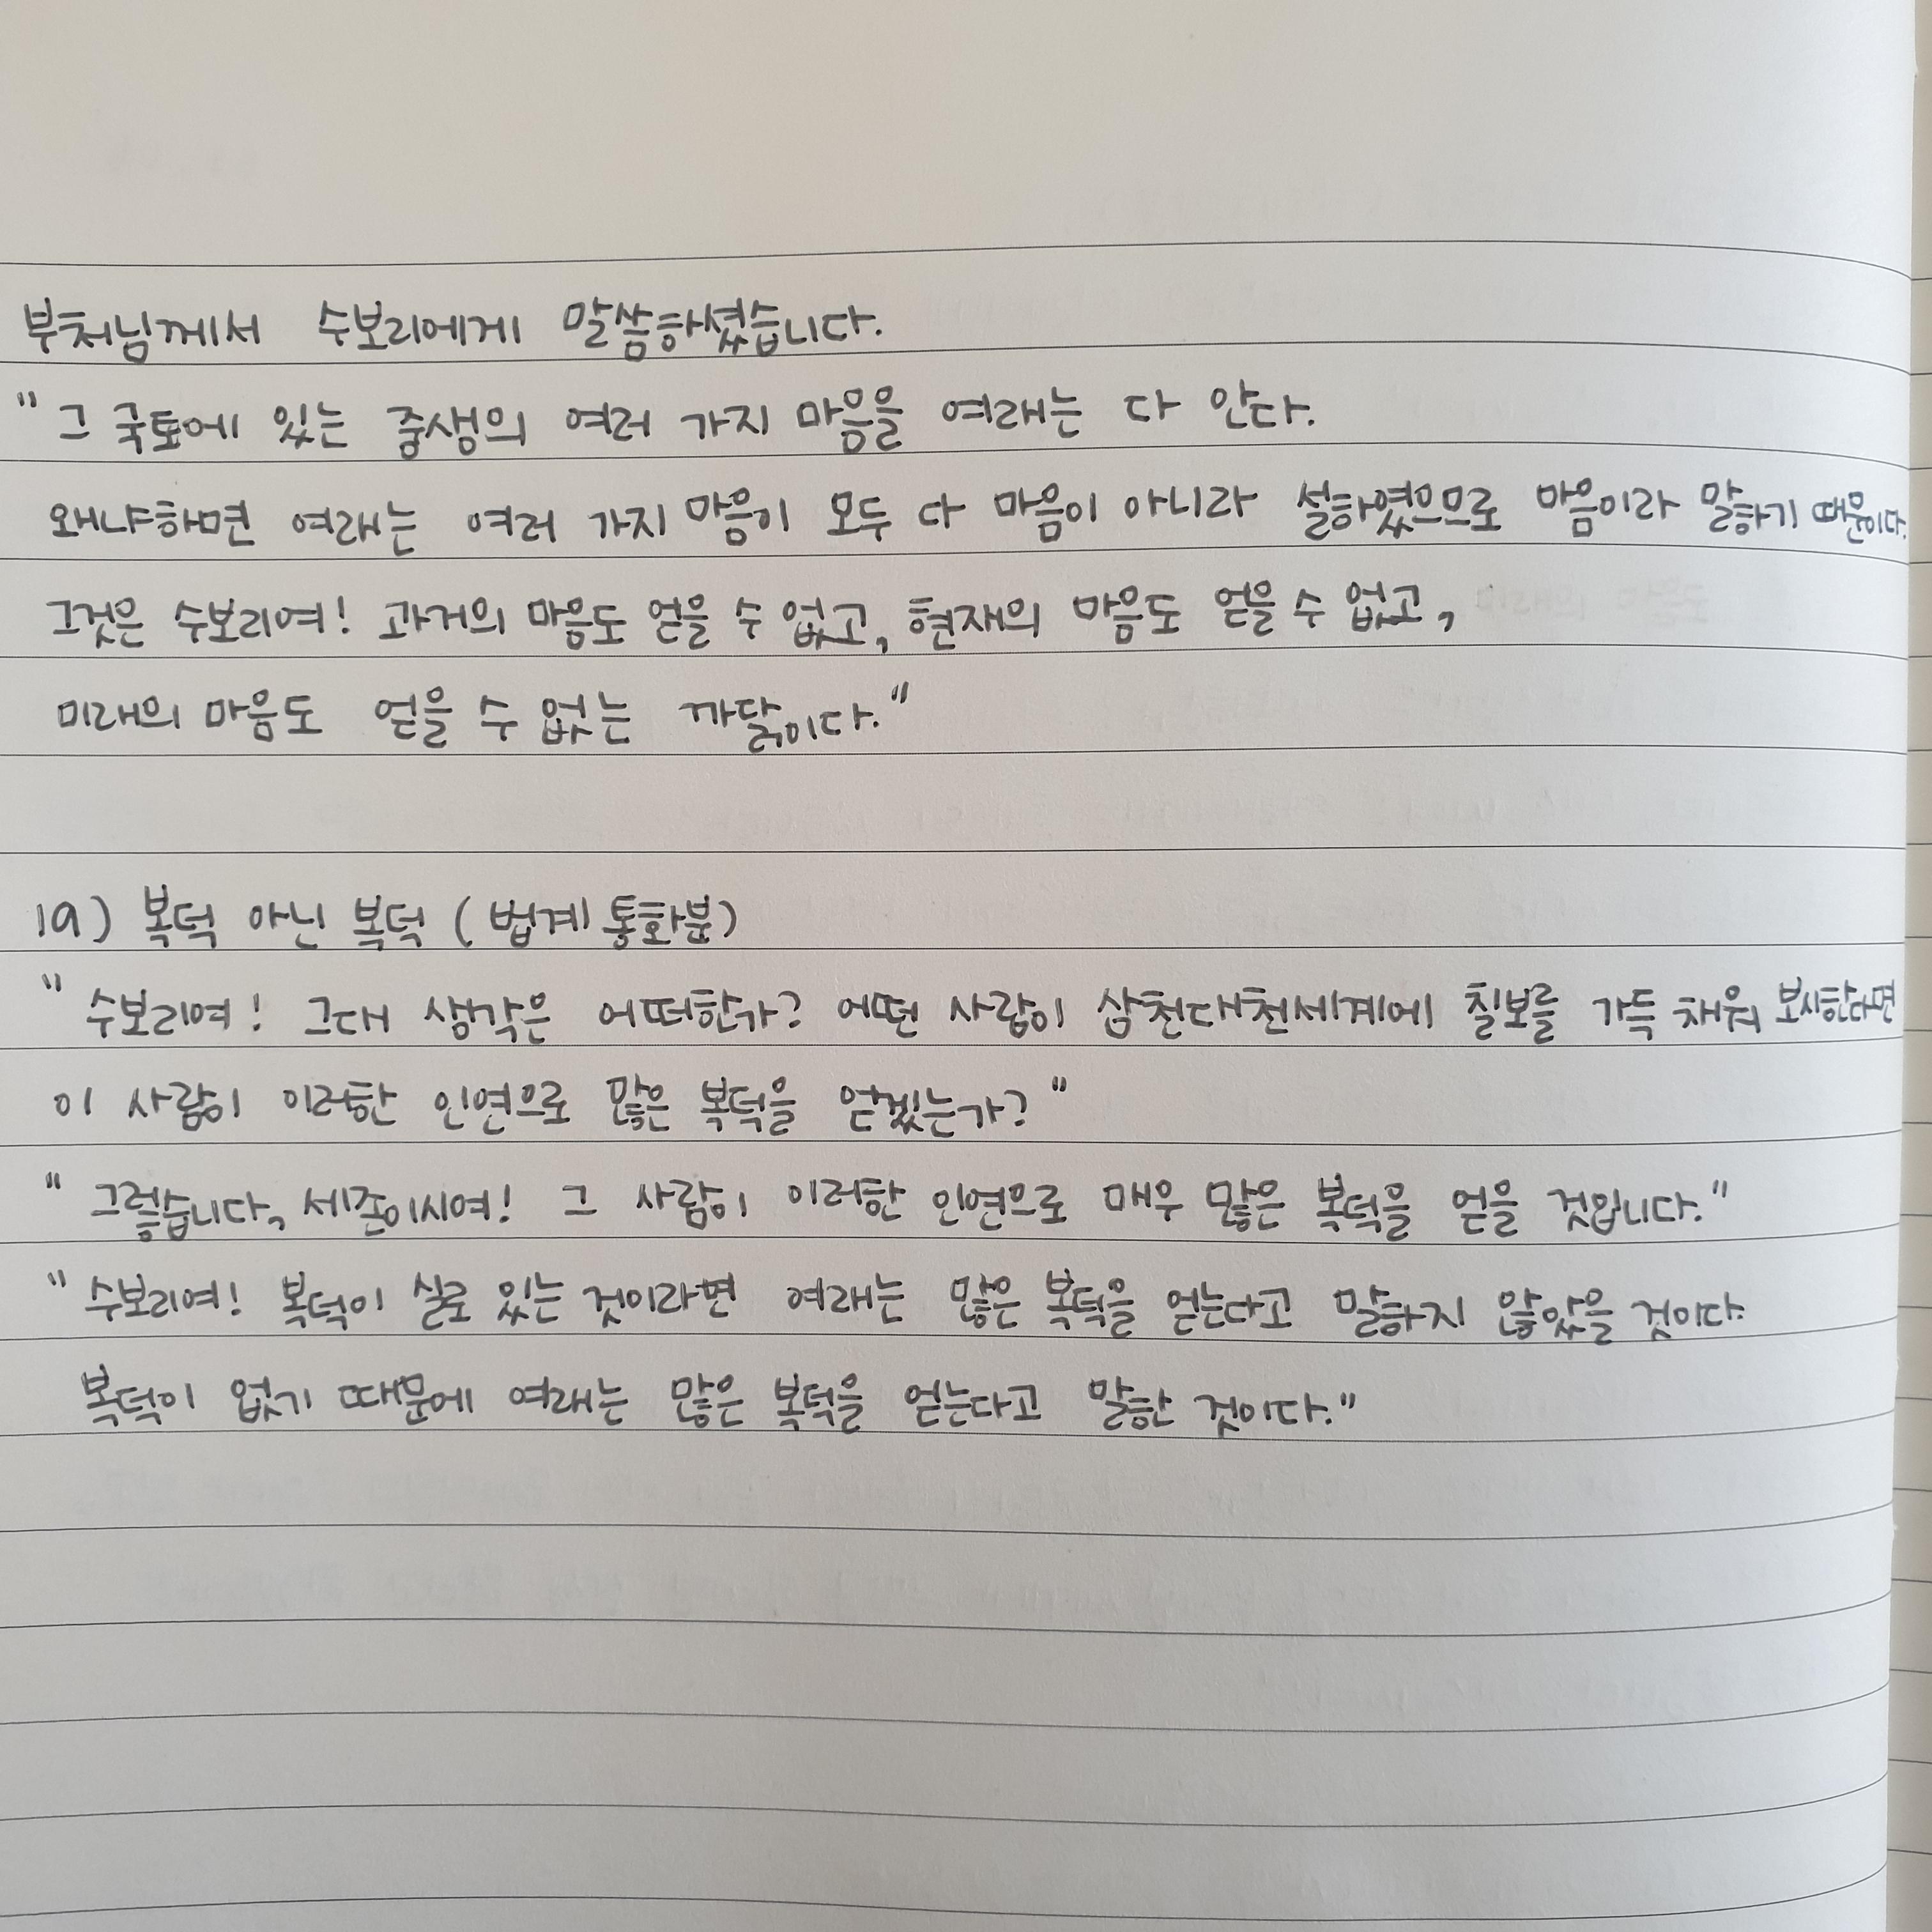 부처님께서 수보리에게 말씀하셨습니다.
"그 국토에 있는 중생의 여러 가지 마음을 여래는 다 안다.
왜냐하면 여래는 여러 가지 마음이 모두 다 마음이 아니라 설하였으므로 마음이라 말하기 때문이다.
그것은 수보리여! 과거의 마음도 얻을 수 없고, 현재의 마음도 얻을 수 없고,
미래의 마음도 얻을 수 없는 까닭이다."
19) 복덕 아닌 복덕 (법계통화분)
"수보리여! 그대 생각은 어떠한가? 어떤 사람이 삼천대천세계에 칠보를 가득 채워 보시한다면
이 사람이 이러한 인연으로 많은 복덕을 얻겠는가?"
"그렇습니다, 세존이시여! 그 사람이 이러한 인연으로 매우 많은 복덕을 얻을 것입니다."
"수보리여! 복덕이 실로 있는 것이라면 여래는 많은 복덕을 얻는다고 말하지 않았을 것이다.
복덕이 없기 때문에 여래는 많은 복덕을 얻는다고 말한 것이다."